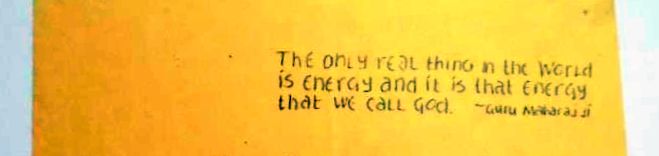 The only real thing in the world
is energy and it is that energy
that we call God. ~Guru Maharaj ji